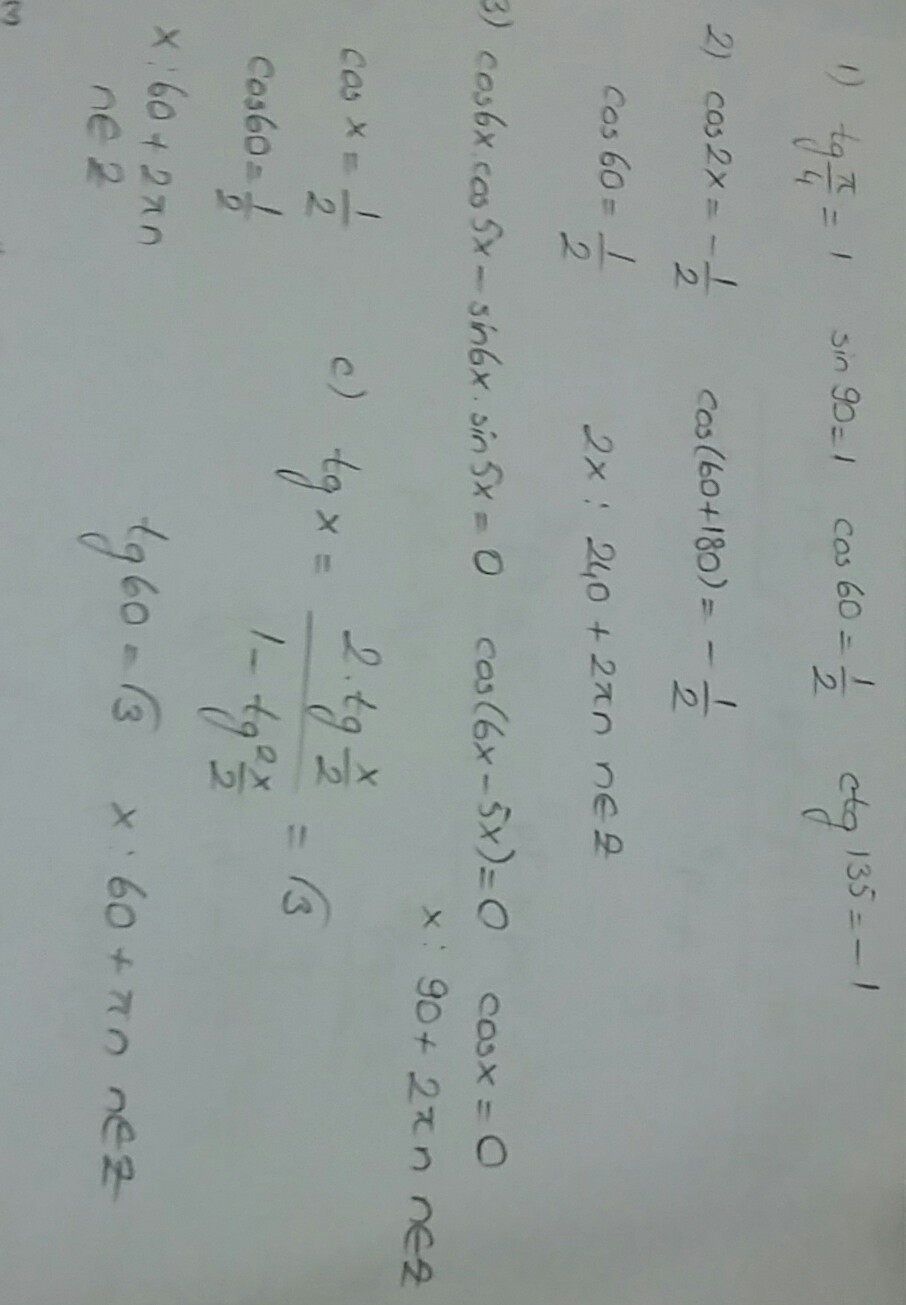 1) tg π/4 = 1 sin 90=1 cos 60=1/2 ctg 135=-1
2) cos2x=-1/2 cos(60+180)=-1/2
cos 60=1/2 2x: 240+2πn n∈Z
3) cos6x.cos5x-sin6x.sin5x=0 cos(6x-5x)=0 cosx=0
x: 90+2πn n∈Z
cos x=1/2 c) tg x = (2.tg x/2)/(1-tg² x/2) = √3
cos60=1/2
x: 60+2πn tg60=√3 x: 60+πn n∈Z
n∈Z